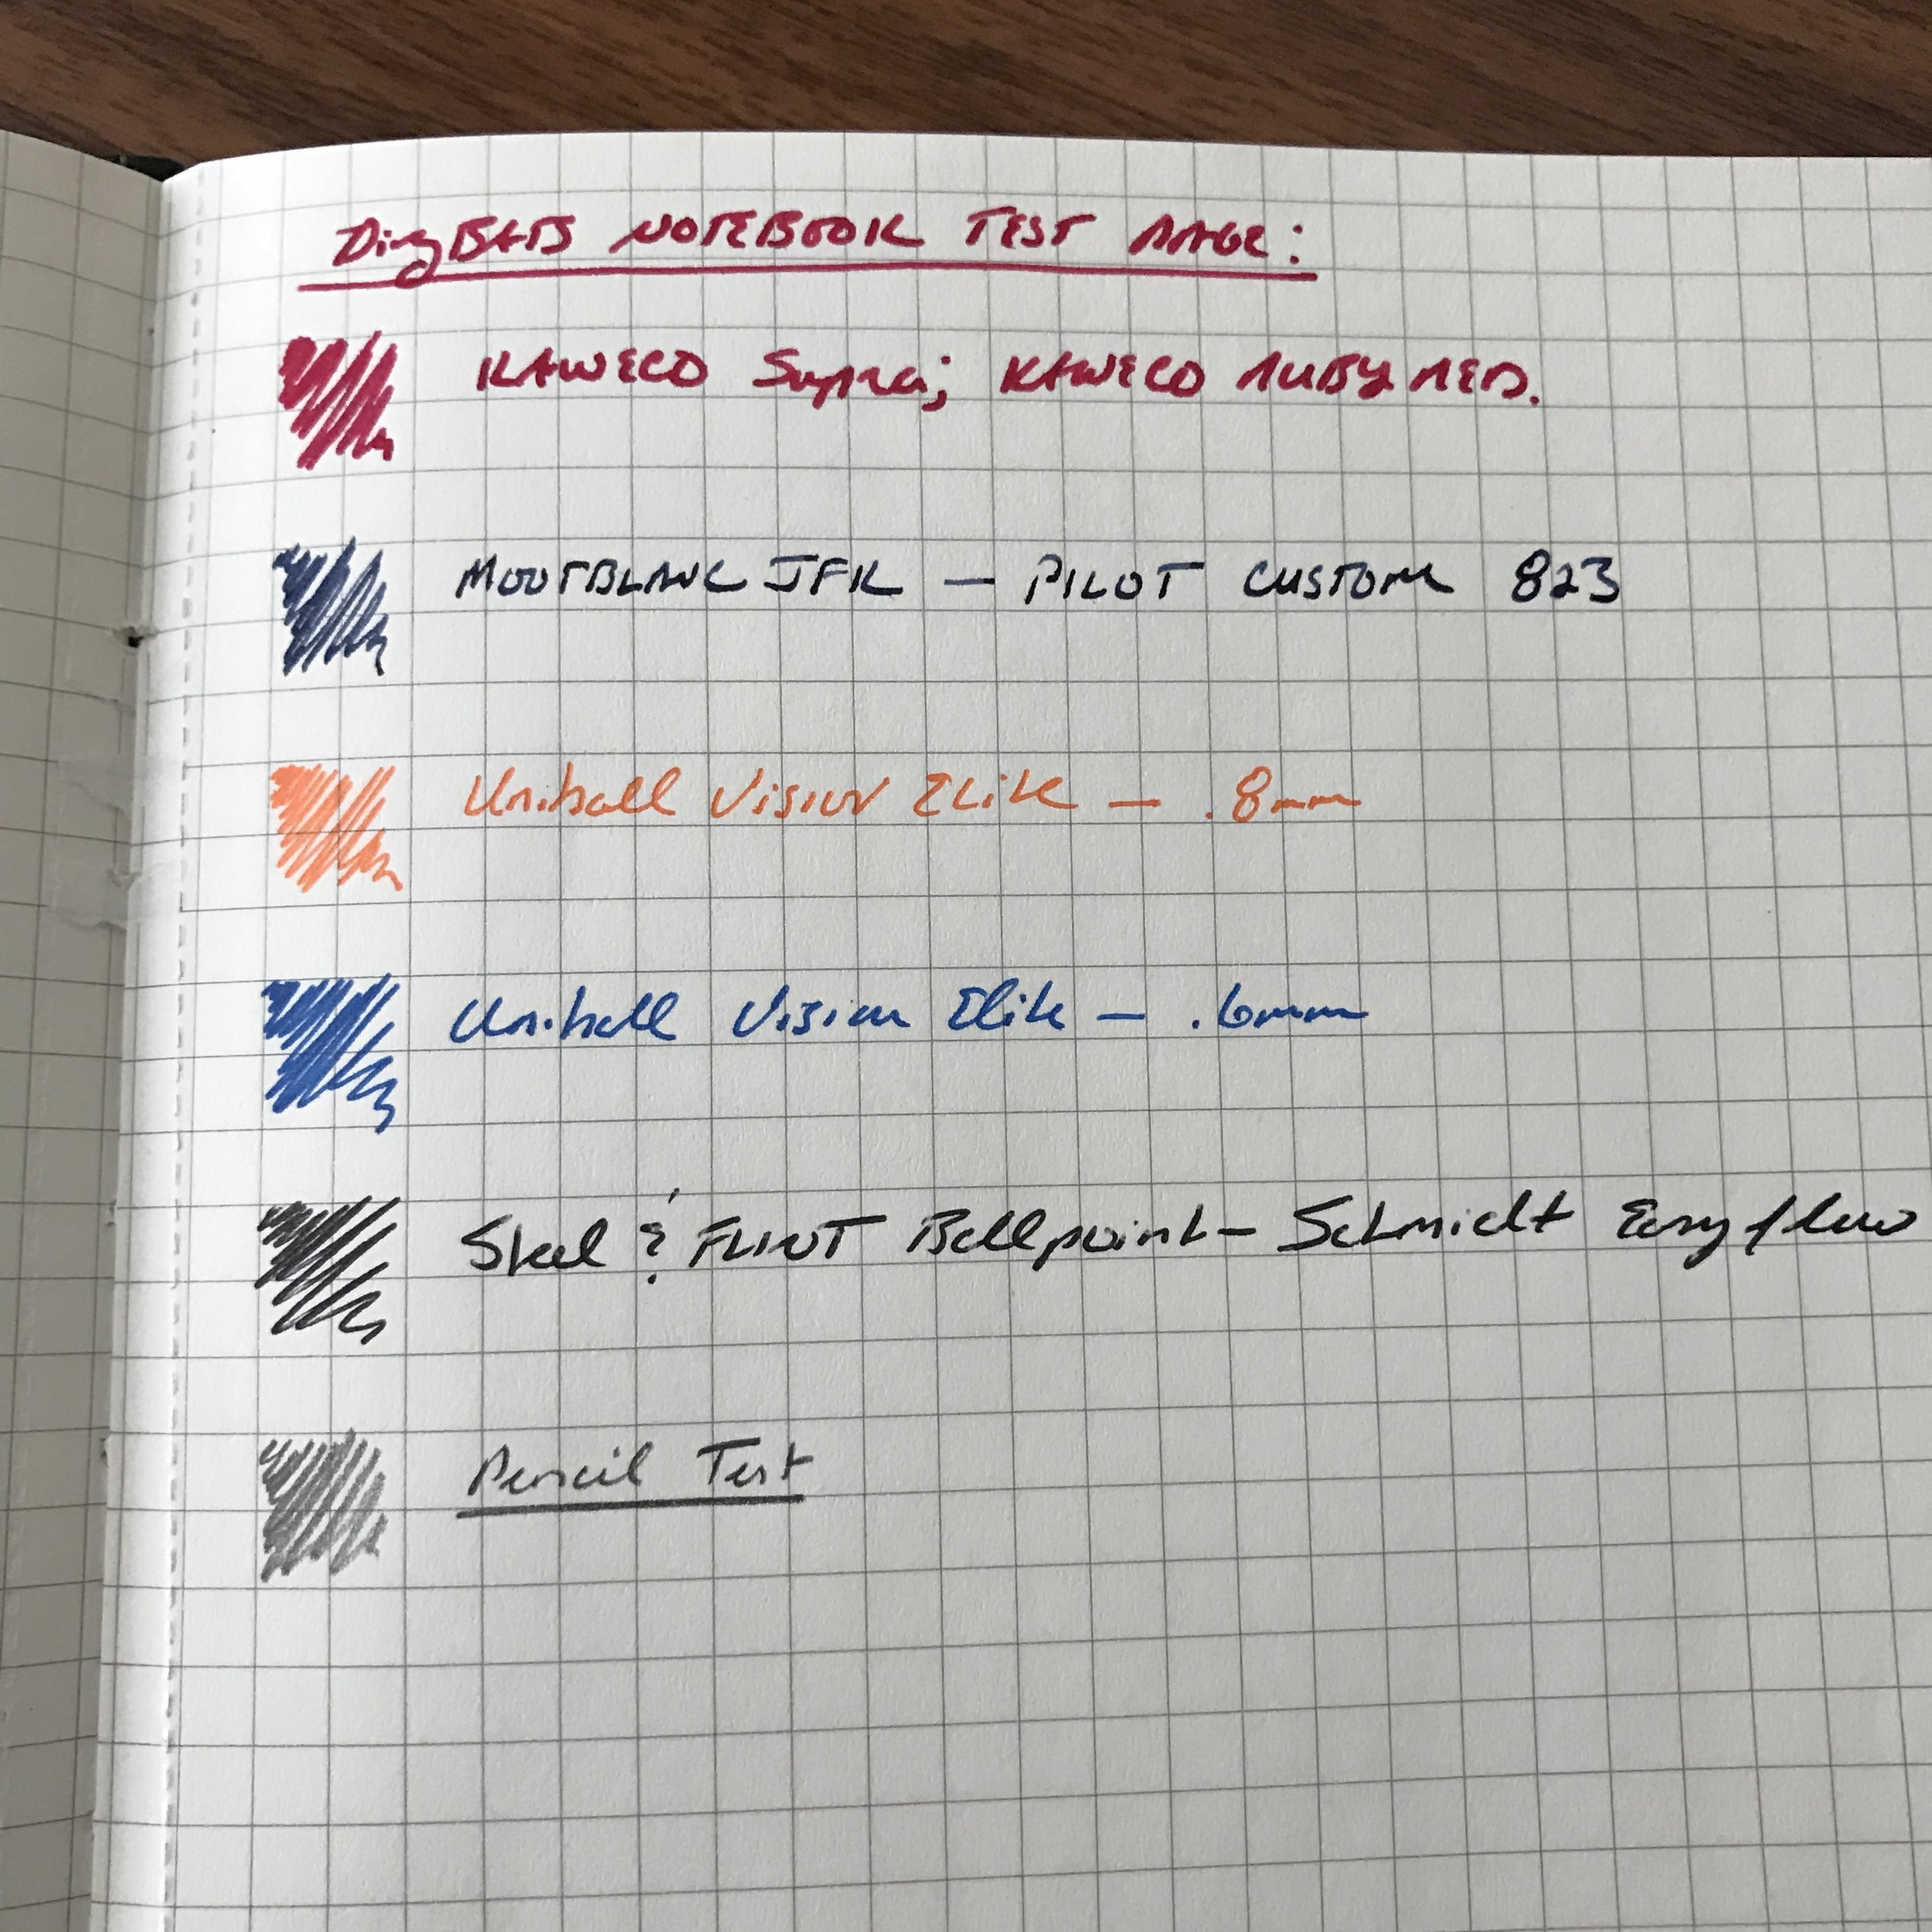 DingBATS NOTEBOOK TEST PAGE:
KAWECO Supra; KAWECO RUBY RED.
MONTBLANC JFK — PILOT CUSTOM 823
Uniball Vision Elite — .8mm
Uniball Vision Elite — .6mm
Steel & FLINT Ballpoint – Schmidt Easyflow
Pencil Test